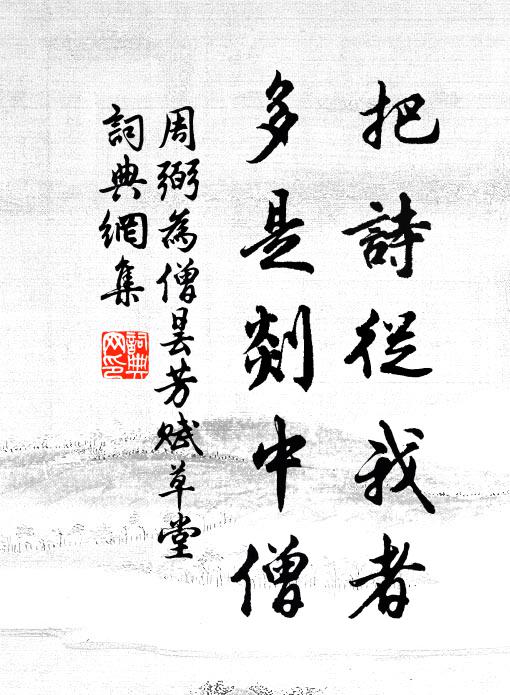 把詩從我者
多是剡中僧
周弼為僧曇芳賦草堂
詞典網集
詞典網印